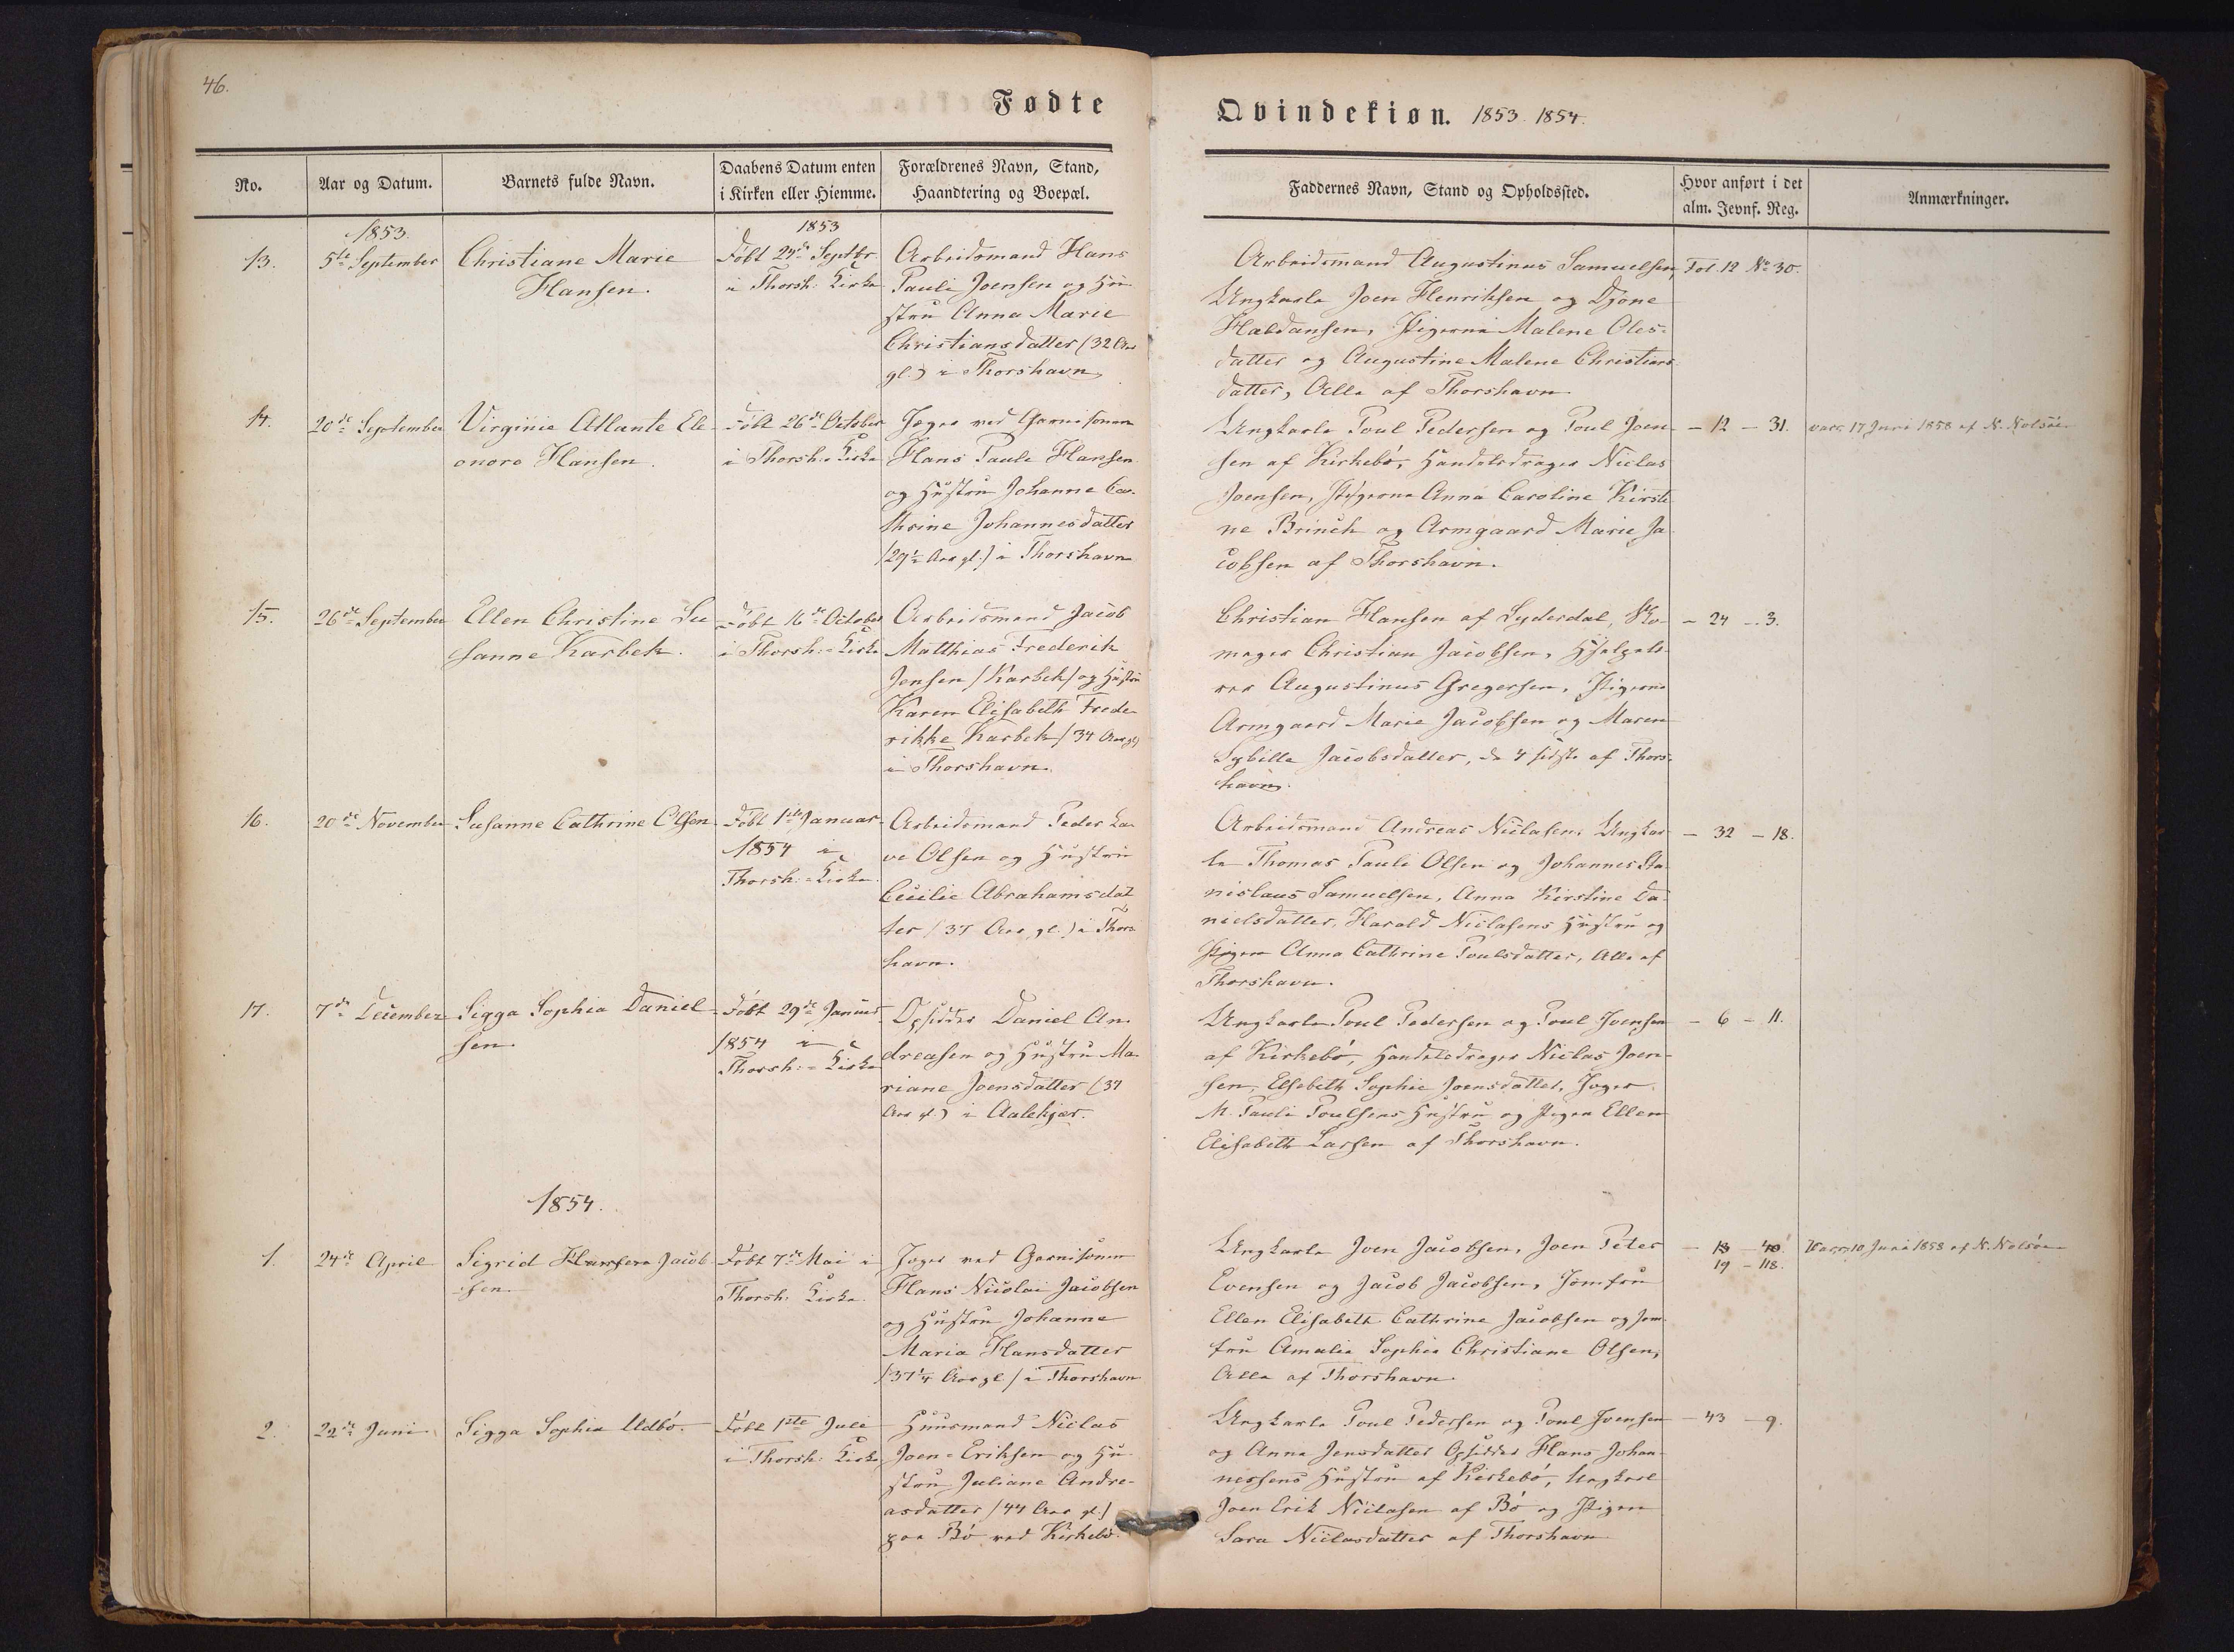 46.
Fødte
Qvindekiøn. 1853. 1854.
No.
Aar og Datum.
Barnets fulde Navn.
Daabens Datum enten
i Kirken eller Hiemme.
Forældrenes Navn, Stand,
Haandtering og Boepæl.
Faddernes Navn, Stand og Opholdssted.
Hvor anført i det
alm. Jevnf. Reg.
Anmærkninger.
1853.
1853
13.
5te September
Christiane Marie
Hansen.
Døbt 29de Septbr.
i Thorsh: Kirke
Arbeidsmand Hans
Pauli Joensen og Hu-
stru Anna Marie
Christiansdatter (32 Aar
gl.) i Thorshavn
Arbeidsmand Augustinus Samuelsen,
Ungkarle Joen Henriksen og Djone
Haldansen, Pigerne Malene Oles-
datter og Augustine Malene Christians
datter, Alle af Thorshavn
Fol. 12 No 30.
14.
20de September
Virginie Atlante Ele-
onore Hansen.
Døbt 26de October
i Thorsh: Kirke
Jæger ved Garnisonen
Hans Pauli Hansen
og Hustru Johanne Ca-
thrine Johannesdatter
(29½ Aar gl.) i Thorshavn
Ungkarle Poul Pedersen og Poul Joen-
sen af Kirkebø, Handelsdrager Niclas
Joensen, Pigerne Anna Caroline Kirsti
ne Brinck og Armgaard Marie Ja
cobsen af Thorshavn.
- 12 - 31.
vacc. 17 Juni 1858 af N. Nolsøe
15.
26de September
Ellen Christine Su
sanne Karbek.
Døbt 16de October
i Thorsh:- Kirke
Arbeidsmand Jacob
Matthias Frederik
Jensen (Karbek) og Hustru
Karen Elisabeth Frede-
rikke Karbek (34 Aar gl)
i Thorshavn.
Christian Hansen af Syderdal, Sko-
mager Christian Jacobsen, Hjelpelæ-
rer Augustinus Gregersen, Pigerne
Armgaard Marie Jacobsen og Maren
Sybille Jacobsdatter, de 4 sidste af Thors-
havn.
- 24 - 3.
16.
20de November
Susanne Cathrine Olsen
Døbt 1ste Januar
1854 i
Thorsh:- Kirke.
Arbeidsmand Peder La-
ve Olsen og Hustru
Cecilie Abrahamsdat
ter (37 Aar gl.) i Thors
havn.
Arbeidsmand Andreas Niclasen, Ungkar-
le Thomas Pauli Olsen og Johannes Sta-
nislaus Samuelsen, Anna Kirstine Da-
nielsdatter, Harald Niclasens Hustru og
Pigen Anna Cathrine Poulsdatter, Alle af
Thorshavn.
- 32 - 18.
17.
7de December
Sigga Sophia Daniel-
sen.
Døbt 29de Januar
1854 i
Thorsh:- Kirke
Opsidder Daniel An-
dreasen og Hustru Ma-
riane Joensdatter (37
Aar gl.) i Aalekjær.
Ungkarle Poul Pedersen og Poul Joensen
af Kirkebø, Handelsdrager Niclas Joen-
sen, Elsebeth Sophie Joensdatter, Jæger
M. Pauli Poulsens Hustru og Pigen Ellen
Elisabeth Larsen af Thorshavn.
- 6 - 11.
1854.
1.
24de April
Sigrid Hansen Jacob-
sen.
Døbt 7de Mai i
Thorsh: Kirke.
Jæger ved Garnisonen
Hans Nicolai Jacobsen
og Hustru Johanne
Maria Hansdatter
(37¼ Aar gl) i Thorshavn
Ungkarle Joen Jacobsen, Joen Peter
Evensen og Jacob Jacobsen, Jomfru
Ellen Elisabeth Cathrine Jacobsen og Jom-
fru Amalia Sophia Christiane Olsen,
Alle af Thorshavn.
- 13 - 40.
19 - 118.
Vacc. 10 Juni 1858 af N. Nolsøe
2.
22de Juni
Sigga Sophia Udbø.
Døbt 1ste Juli
i Thorsh: Kirke
Huusmand Niclas
Joen-Eriksen og Hu-
stru Juliane Andre-
asdatter (44 Aar gl.)
paa Bø ved Kirkebø.
Ungkarle Poul Pedersen og Poul Joensen
og Anna Jensdatter Opsidder Hans Johan-
nessens Hustru af Kirkebø, Ungkarl
Joen Erik Niclasen af Bø og Pigen
Sara Niclasdatter af Thorshavn
- 43 - 9.